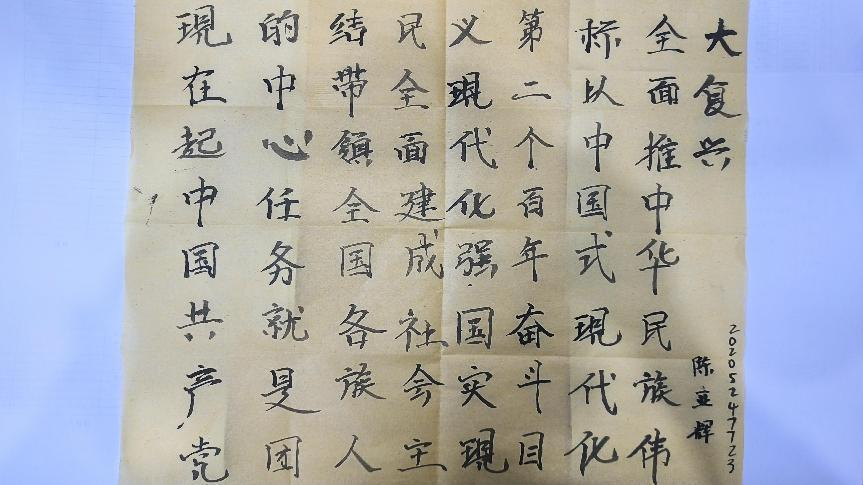 現在起中国共产党
的中心任务就是团
结带領全国各族人
民全面建成社会主
义現代化强国实現
第二个百年奋斗目
标以中国式現代化
全面推中华民族伟
大复兴
陈立辉
20205247723